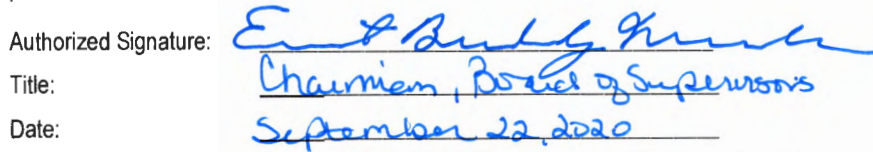 Authorized Signature:
Title: Chairman, Board of Supervisors
Date: September 22, 2020